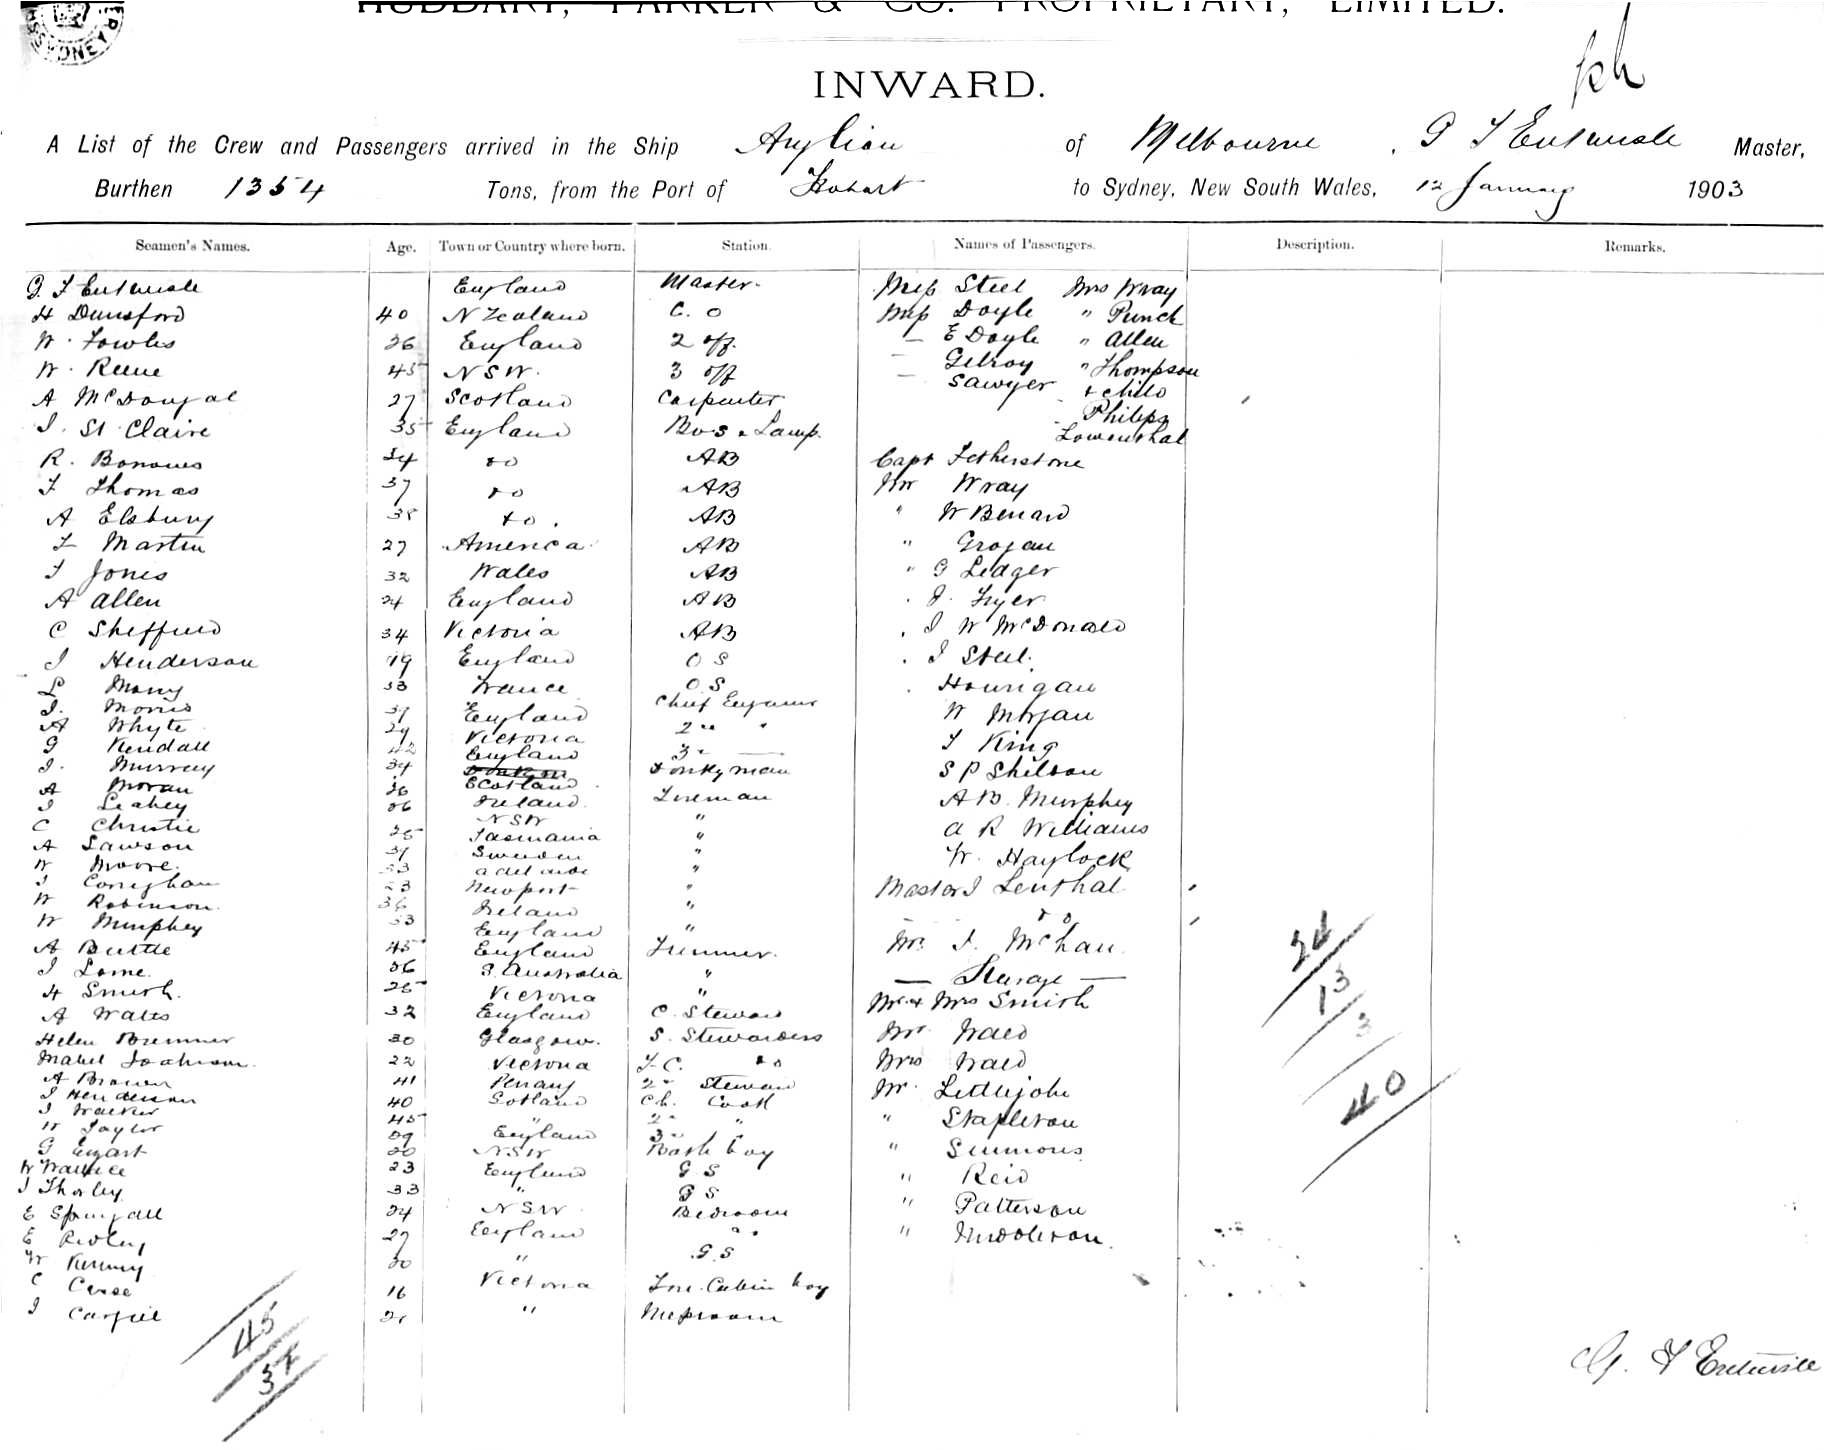 HUDDART, PARKER & CO. PROPRIETARY, LIMITED.
SYDNEY
INWARD.
A List of the Crew and Passengers arrived in the Ship Anglian of Melbourne, G F Master,
Burthen 1354 Tons, from the Port of Hobart to Sydney, New South Wales, 12 January 1903
Seamen's Names. Age. Town or Country where born. Station. Names of Passengers. Description. Remarks.
G. F England Master. Miss Steel Mrs Wray
H Dunsford 40 N Zealand C. O Miss Doyle " Punch
W. Fowles 26 England 2 off. — E Doyle " Allen
W. Reeve 45 NSW. 3 off — Gilroy " Thompson
A McDougal 27 Scotland Carpenter — Sawyer + child
J. St Claire 35 England Bos & Lamp. Philips
Lowenthal
R. 34 do AB Capt Fetherstone
F Thomas 37 do AB Mr Wray
A Elsbury 38 do. AB " W Benard
F Martin 27 America AB " Grogan
J Jones 32 Wales AB " G Ledger
A Allen 24 England AB " J. Fryer
C Sheffield 34 Victoria AB " J W McDonald
J Henderson 19 England OS " J Steel.
L 33 France O.S " Hourigan
J. Morris 37 England Chief Engineer W Morgan
A Whyte 29 Victoria 2nd "
G Kendall 42 England 3rd — J King
J. Murray 34 Scotland Donkyman S P Shilson
A Moran 36 Ireland Fireman A B. Murphey
J Leahey 26 NSW "
C Christie 25 Tasmania " A R Williams
A Lawson 37 Sweden " W. Haylock
W Moore. 23 Adelaide "
J 23 Newport " Master J Lenthal
W Robinson. 36 Ireland " do
W Murphey 33 England "
A Buttle 45 England Trimmer. Mr. J. McChan.
J Lorne. 26 S. Australia " — Steerage —
H Smith. 25 Victoria " Mr & Mrs Smith
A Wales 32 England C. Steward
Helen Bremner 30 Glasgow. S. Stewardess Mr. Wald
Mabel 22 Victoria F. C. do Mrs Wald
A Brown 41 Penang 2nd Steward Mr. Littlejohn
J Henderson 40 Scotland Ch. Cook
J Walker 45 " 2nd " " Stapleton
W Taylor 29 England 3rd "
G 20 NSW Wash boy " Simmons
W Wallace 23 England G S
J Thorley 33 " G S " Reid
E Springall 24 NSW Bedroom " Patterson
E Ridley 27 England " " Middleton.
W Kenny 20 " G. S
C 16 Victoria Fore Cabin boy
J 21 " Messroom
24
13
3
40
45
32
G. F